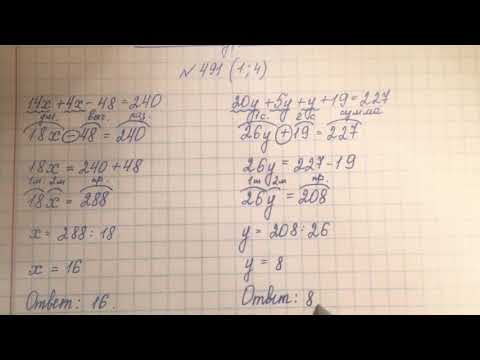 № 491 (1; 4)
14x + 4x - 48 = 240
ум. выч. раз.
18x - 48 = 240
18x = 240 + 48
1м 2м пр.
18x = 288
x = 288 : 18
x = 16
Ответ: 16.
20y + 5y + y + 19 = 227
1с. 2с сумма
26y + 19 = 227
26y = 227 - 19
1м 2м пр.
26y = 208
y = 208 : 26
y = 8
Ответ: 8